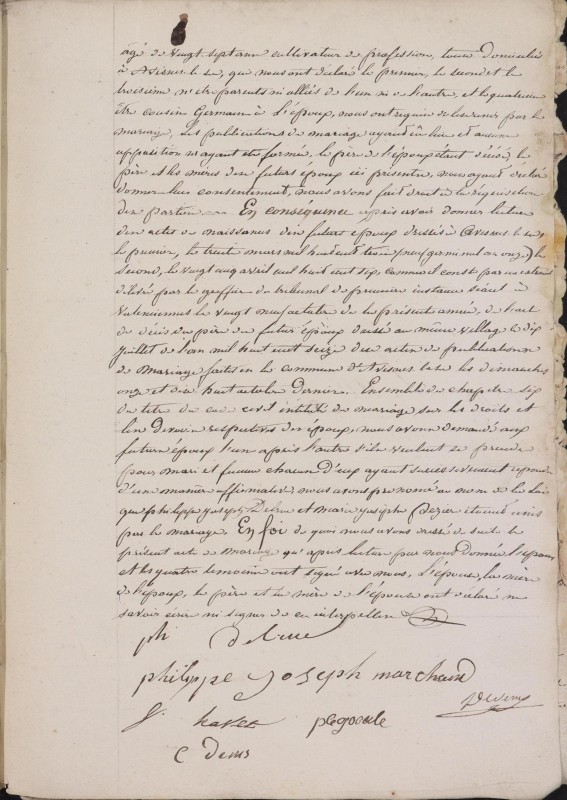 âgé de vingt sept ans cultivateur de profession, tous domiciliés
à Avesnes le sec, que nous ont déclaré le premier, le second et le
troisième n'être parents ni alliés de l'un ni de l'autre, et le quatrième
être cousin Germain à l'époux, nous ont requis de les unir par le
mariage, les publications de mariage ayant eu lieu et aucune
opposition n'ayant été formée, le père de l'époux étant décédé, le
père et les mères des futurs époux ici présents, nous ayant déclaré
donner leur consentement, nous avons fait droit à la réquisition
des parties En conséquence après avoir donner lecture
des actes de naissances des futurs époux dressés à Avesnes le sec,
le premier, le trente mars mil huit cent trois (neuf germinal an onze) le
second, le vingt cinq avril mil huit cent sept, comme il conste par un extrait
délivré par le greffier du tribunal de première instance séant à
Valenciennes le vingt neuf octobre de la présente année, de l'acte
de décès du père du futur époux dressé au même village le dix
juillet de l'an mil huit cent seize des actes de publications
de mariage faites en la commune d'Avesnes le sec les dimanches
onze et dix huit octobre dernier. Ensemble du chapitre six
du titre du code civil intitulé du mariage sur les droits et
les devoirs respectifs des époux, nous avons demandé aux
futurs époux l'un après l'autre s'ils veulent se prendre
pour mari et femme chacun d'eux ayant successivement répondu
d'une manière affirmative nous avons prononcé au nom de la loi
que philippe joseph et marie joseph étaient unis
par le mariage. En foi de quoi nous avons dressé de suite le
présent acte de mariage qu'après lecture par nous donnée l'époux
et les quatre témoins ont signé avec nous, l'épouse, la mère
de l'époux, le père et la mère de l'épouse ont déclaré ne
savoir écrire ni signer de ce interpellés
ph
philippe joseph marchand
f. havez
C denis